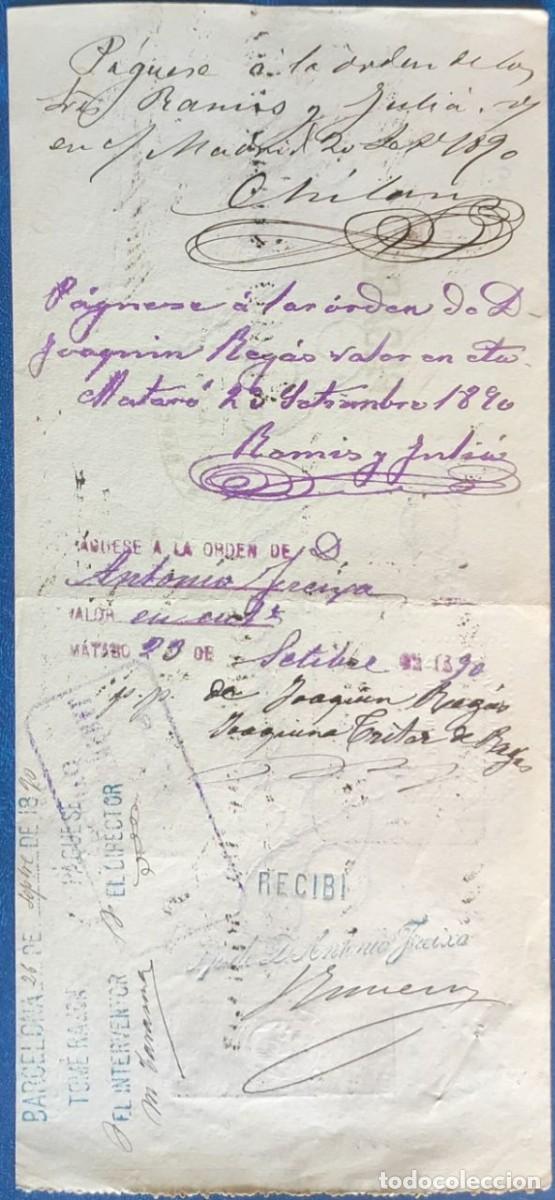 Páguese á la órden de los
Sres Ramis y Juliá, v/
en c/ Madrid 20 Se 1890
Páguese á la órden de D
Joaquin Regás valor en cta
Mataró 23 Setiembre 1890
Ramis y Juliá
PÁGUESE A LA ORDEN DE D
Antonio Freixa
VALOR en cu
MATARÓ 23 DE Setibre DE 1890
p.p. de Joaquin Regás
Joaquina de Regás
RECIBI
p. de D. Antonio Freixa
BARCELONA 26 DE Sepbre DE 1890
TOMÉ RAZON PÁGUESE
EL INTERVENTOR EL DIRECTOR
todocoleccion